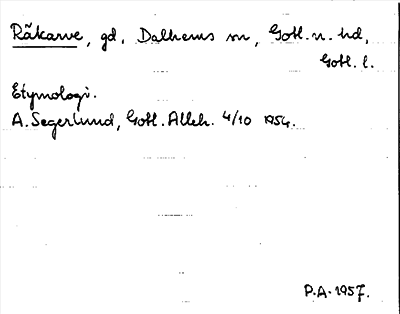 Räkarve, gd, Dalhems sn, Gotl. n. hd,
Gotl. l.
Etymologi.
A. Segerlund, Gotl. Alleh. 4/10 1954.
P.A. 1957.